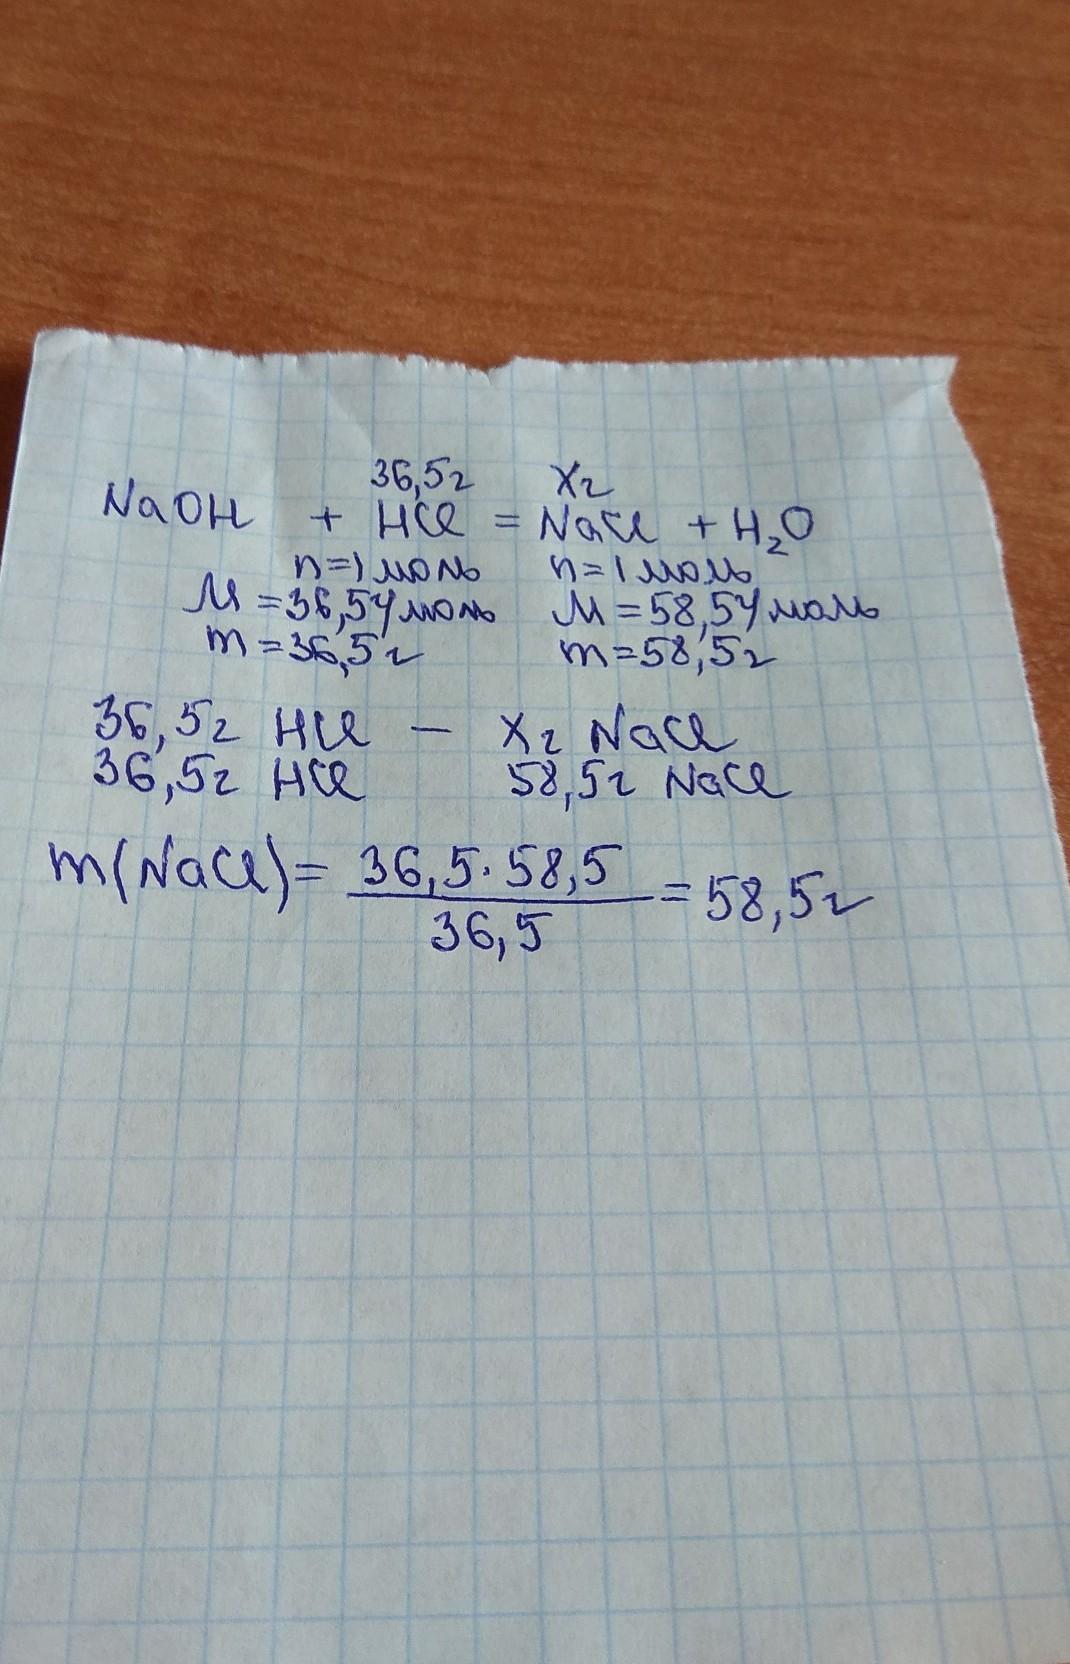 36,5г Xг
NaOH + HCl = NaCl + H₂O
n=1моль n=1моль
M=36,5г/моль M=58,5г/моль
m=36,5г m=58,5г
36,5г HCl – Xг NaCl
36,5г HCl 58,5г NaCl
m(NaCl)= 36,5·58,5 / 36,5 = 58,5г